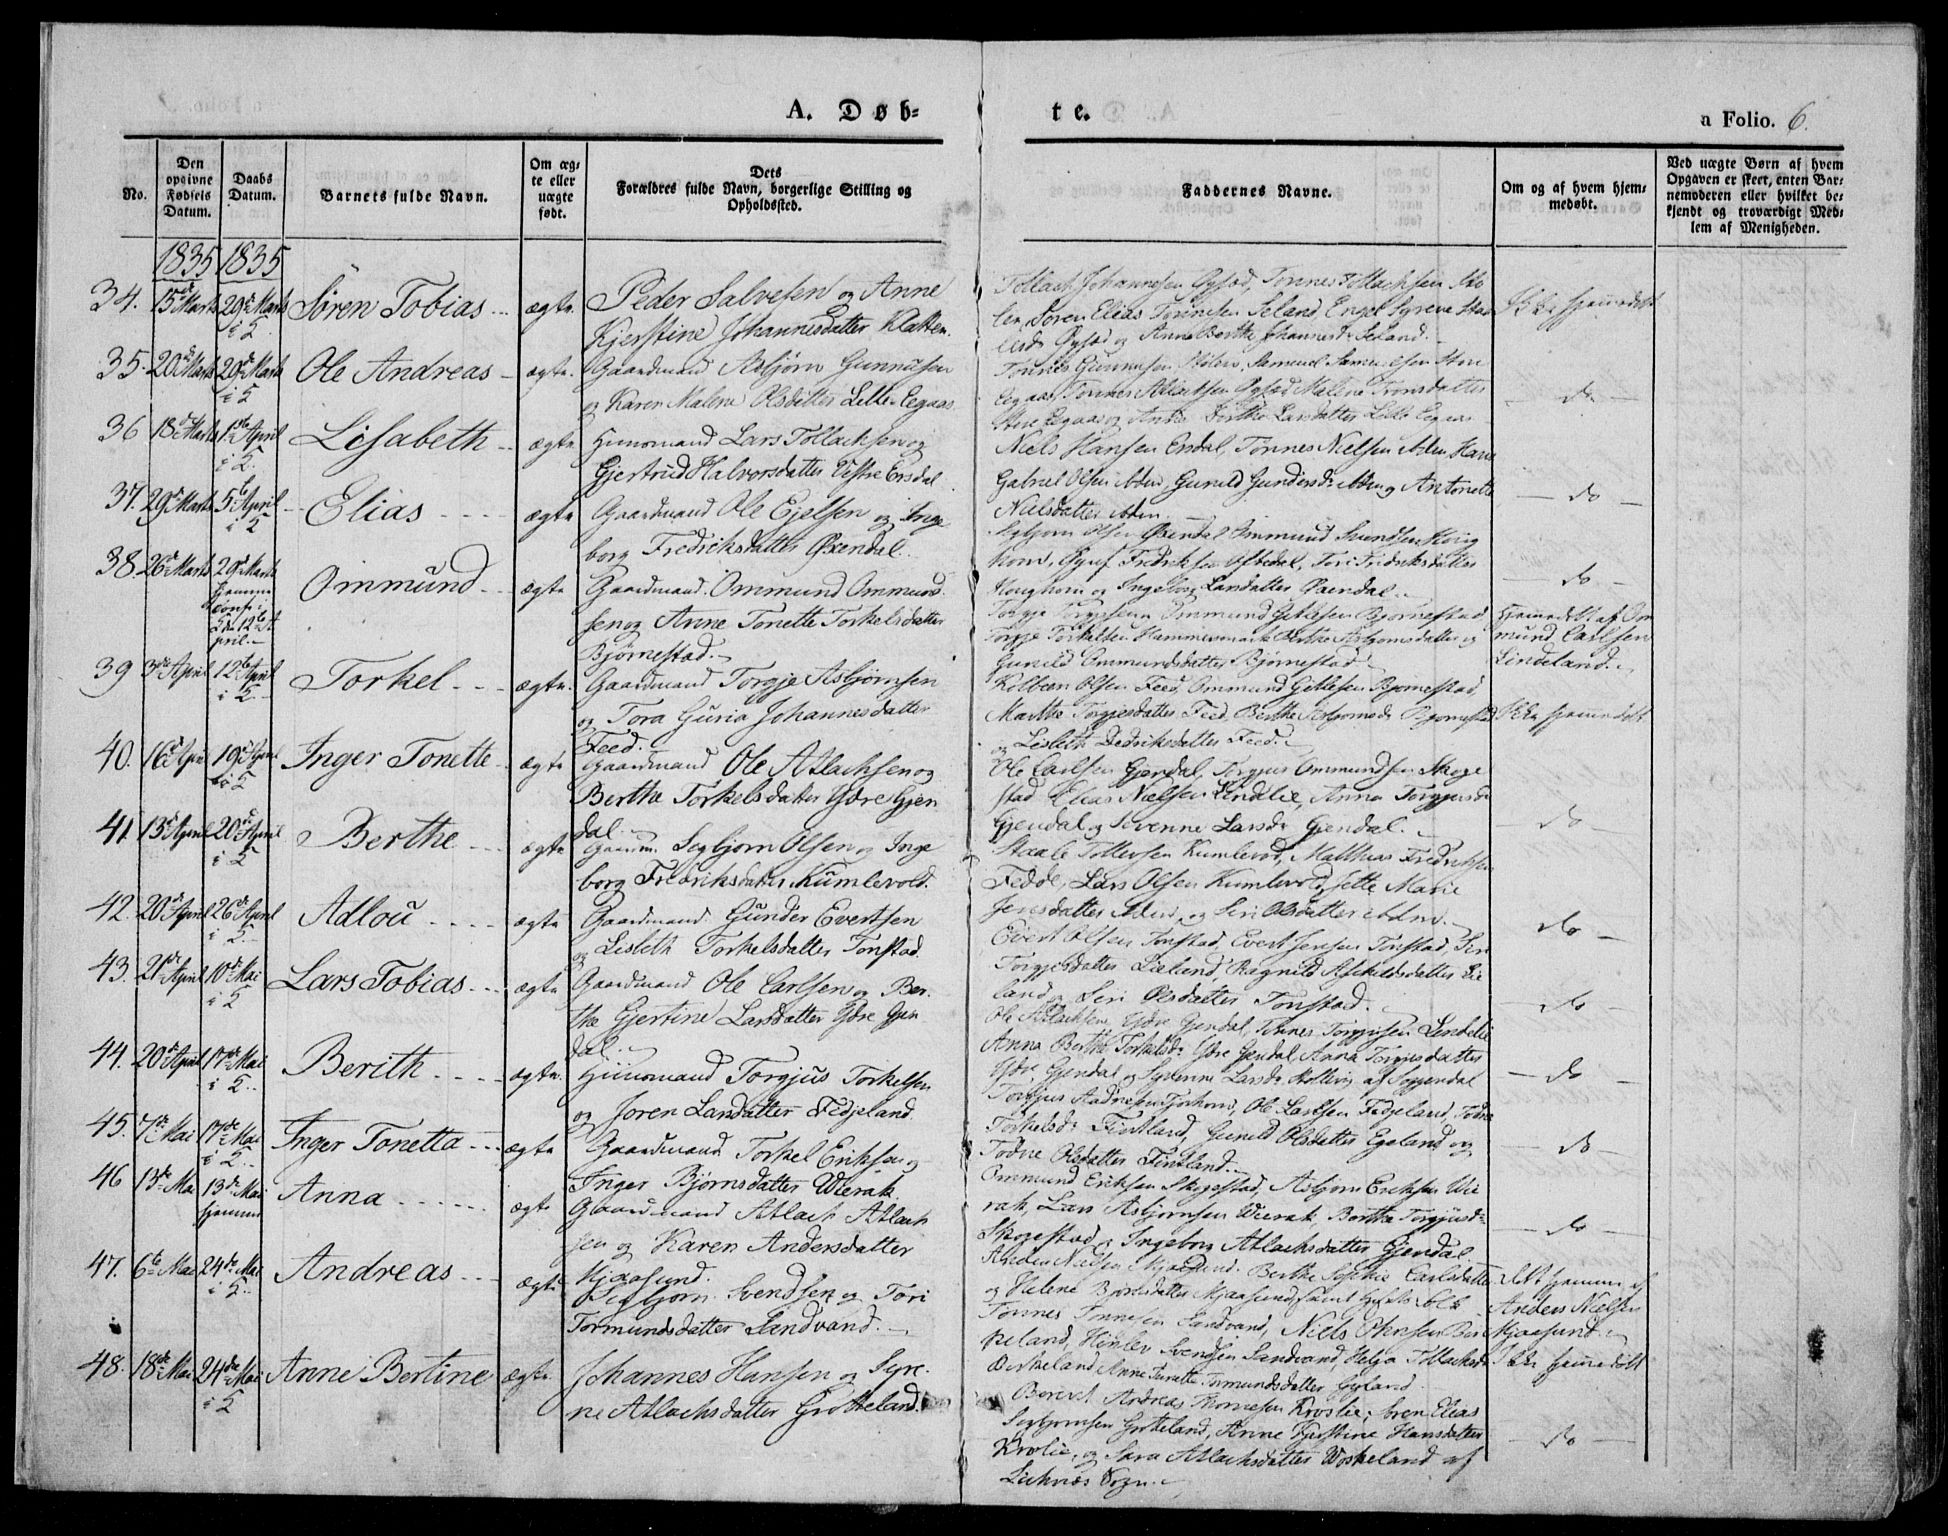 A. Døb=
te.
a Folio. 6.
No.
Den opgivne Fødsels Datum.
Daabs Datum.
Barnets fulde Navn.
Om æg- te eller uægte født.
Dets Forældres fulde Navn, borgerlige Stilling og Opholdssted.
Faddernes Navne.
Om og af hvem hjem- medøbt.
Ved uægte Børn af hvem Opgaven er skeet, enten Bar- nemoderen eller hvilket be- kjendt og troværdigt Med- lem af Menigheden.
1835 1835
34. 15de Marts 29de Marts i 2. Søren Tobias ægte Peder Salvesen og Anne
Kjerstine Johannesdatter Klatten.
Tollach Johannesen Øysæd, Tønnes Tollachsen
Søren Elias Tønnesen Seland, Engel Syrene
Øysæd og Anne Berthe Johannesdr Seland.
Ikke hjemmedøbt
35. 20de Marts 29de Marts i 2 Ole Andreas ægte. Gaardmand Asbjørn Gunnusen
og Karen Malene Olsdatter Lille Eegaas
Tønnes Gunnusen Samuel Samuelsen Store
Eegaas, Tønnes Øysæd Malene Tronsdatter
Store Eegaas og Anne Larsdatter Lille Eegaas
do
36 18de Marts 1ste April i 2. Lisabeth ægte Huusmand Lars Tollachsen og
Gjertrud Halvorsdatter Vestre Ersdal
Niels Hansen Ersdal, Tønnes Nielsen ibdm Hans
Gabriel Olsen ibdm, Gunild Gundersdr ibdm og Antonette
Nielsdatter ibdm.
do
37. 29de Marts 5te April i 2 Elias ægte Gaardmand Ole Ejelsen og Inge
borg Fredriksdatter Øxendal.
Segbjørn Olsen Øxendal Ommund Svendsen Houg
hom, Fredriksen Tori Fredriksdatter
Houghom og Ingeborg Larsdatter Øxendal.
do
38. 26de Marts 29de Marts hjemme i 2 den 12te A pril. Ommund ægte Gaardmand Ommund Ommund
sen og Anne Tonette Torkelsdatter
Bjørnestad.
Torgje Torgjesen Ommund Gitlesen Bjørnestad,
Torgje Torkelsen Hammermark Berthe Asbjørnsdatter og
Gunild Ommundsdatter Bjørnestad
Hjemmedøbt af Om
mund Carlsen
Lindeland.
39 3die April 12te April i 2. Torkel ægte. Gaardmand Torgje Asbjørnsen
og Tora Guria Johannesdatter
Feed.
Kolbeen Olsen Feed, Ommund Gitlesen Bjørnestad,
Marthe Torgjesdatter Feed, Berthe Asbjørnsdr Bjørnestad
og Lisleth Dedriksdatter Feed.
Ikke hjemmedøbt
40. 16de April 19de April i 2 Inger Tonette ægte Gaardmand Ole Atlachsen og
Berthe Torkelsdatter Ydre Gjen
dal.
Ole Carlsen Gjendal, Torgjus Ommundsen Skoge
stad Elias Nielsen Lindelie, Anna Torgjusdr
Gjendal og Severine Larsdr Gjendal.
do
41. 13de April 20de April i 2 Berthe ægte Gaardm. Segbjørn Olsen og Inge
borg Fredriksdatter Kumlevold.
Staale Tollevsen Kumlevold, Matthias Fredriksen
Lars Olsen Kumlevold, Jette Marie
Jensdatter ibdm, og Siri Olsdatter ibdm.
do
42. 20de April 26de April i 2. Adlou ægte Gaardmand Gunder Evertsen
og Lisleth Torkelsdatter Tonstad.
Evert Olsen Tonstad, Evert Jensen Tonstad, Siri
Torgjesdatter Lieland, Ragnild Lie
land og Siri Olsdatter Tonstad.
do
43. 21de April 10de Mai i 2 Lars Tobias ægte Gaardmand Ole Carlsen og Ber
the Gjertine Larsdatter Ydre Gjen
dal.
Ole Atlachsen, Ydre Gjendal, Tønnes Torgjusen Lindelie
Anna Berthe Torkelsdr Ydre Gjendal Anna Torgjusdatter
Ydre Gjendal og Syvenne Larsdr af Soggendal
do
44. 20de April 17de Mai i 2. Berith ægte Huusmand Torgjus Torkelsen
og Joren Larsdatter Fidjeland
Torgjus Joshom, Ole Larsen Fidjeland, Todne
Torkelsdr Fintland, Gunild Olsdatter Egeland og
Todne Olsdatter Fintland.
do
45. 7de Mai 17de Mai i 2. Inger Tonetta ægte Gaardmand Torkel Eriksen og
Inger Bjørnsdatter Wierak.
Ommund Eriksen Skogestad, Asbjørn Eriksen Wie
rak, Lars Asbjørnsen Wierak, Berthe Torgjusdr
Skogestad og Ingeborg Atlachsdatter Gjendal
do
46 13de Mai 13de Mai hjemme Anna ægte Gaardmand Atlach Atlach
sen og Karen Andersdatter
Mjaasund.
Anders Nielsen Mjaasund. Berthe Sophie Carlsdatter
og Helene Bjørnsdatter Mjaasund,
Døbt hjemme af
Anders Nielsen
Mjaasund.
47. 6te Mai 24de Mai i 2. Andreas ægte Segbjørn Svendsen og Tori
Tormundsdatter Sandvand.
Tønnes Tønnesen Sandvand, Niels Bir
keland, Svendsen Sandvand, Helga Tollachsdr
Birkeland Anne Tormundsdatter Gyland.
Ikke hjemmedøbt
48. 18de Mai 24de Mai i 2 Anne Bertine ægte Johannes Hansen og Syre
ne Atlachsdatter Grøtteland.
Andreas Krøslie, Søren Elias
Segbjørnsen Grøtteland, Anne Kjerstine Hansdatter
Krøslie, og Sara Atlachsdatter af
Sogn.
do